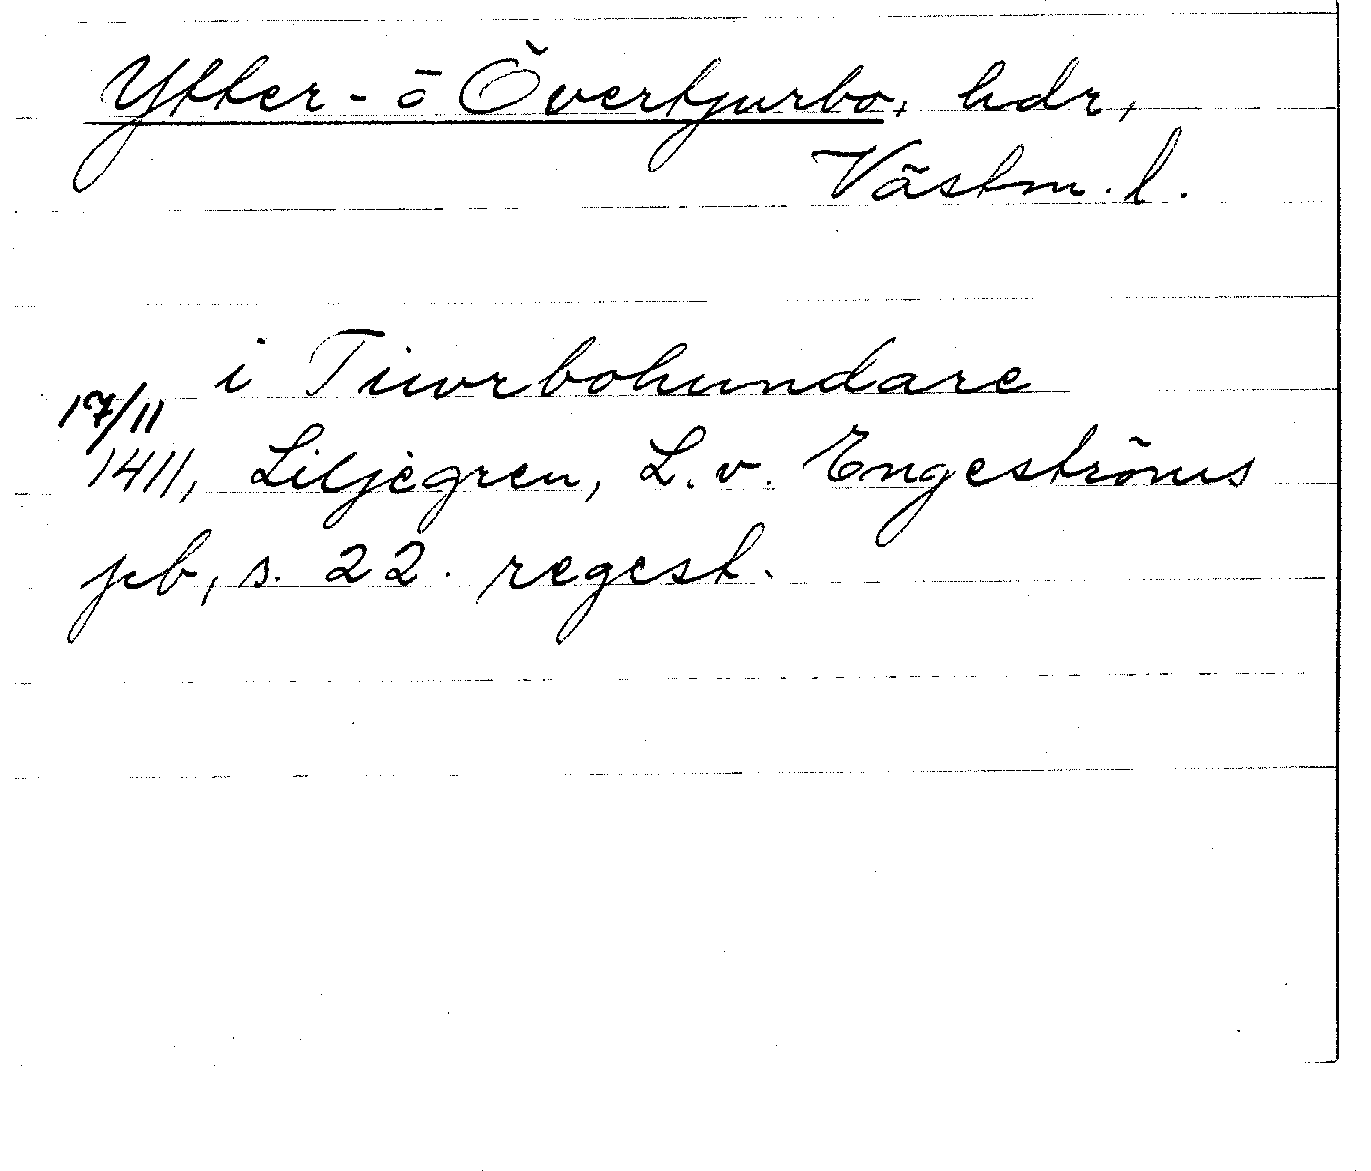 Ytter- o Övertjurbo, hdr,
Västm. l.
i Tiwrbohundare
17/11
1411, Liljegren, L. v. Engeströms
pb, s. 22. regest.